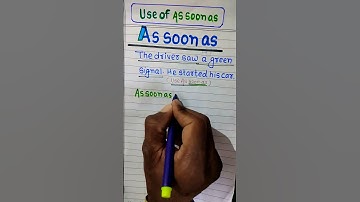 Use of As soon as
As soon as
The driver saw a green
signal. He started his car.
(Use As soon as)
As soon as